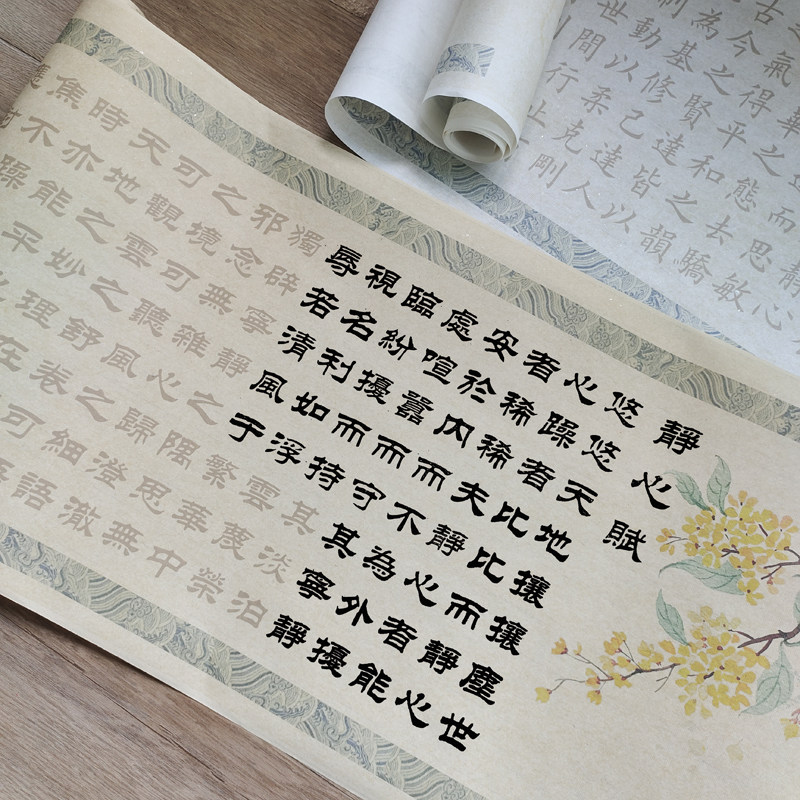 靜心賦
悠悠天地攘攘塵世
心躁者比比而靜心
者稀稀夫靜心者能
安於內而不為外擾
處喧囂而守其寧靜
臨紛擾而持其淡泊
視名利如浮雲蔑榮
辱若清風于繁華中
獨辟寧靜之隅思無
邪念無雜心歸澄澈
之境可聽風之細語
可觀雲之舒卷可
天地之妙理在
時亦能平
焦不躁
而思敏
華之態去驕
氣得平和之韻
古今之賢達皆以
為基修己達人
動以柔克剛
世間行止